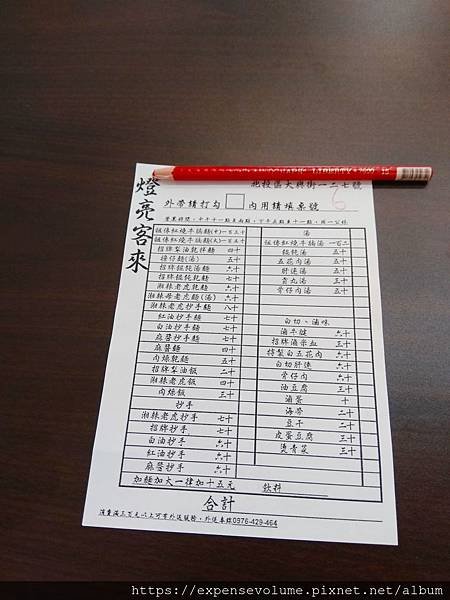 燈亮客來
北投區大興街一二七號
外帶請打勾 內用請填桌號 6
祖傳紅燒牛腩麵(中)一百三十
祖傳紅燒牛腩麵(大)一百五十
招牌梨油乾拌麵 四十
擔仔麵(湯) 五十
招牌餛飩湯麵 六十
招牌餛飩乾麵 七十
湘辣老虎乾麵 六十
湘辣老虎麵(湯) 六十
湘辣老虎抄手麵 八十
紅油抄手麵 七十
白油抄手麵 七十
麻醬抄手麵 七十
麻醬麵 四十
肉燥乾麵 五十
招牌梨油飯 二十
湘辣老虎飯 四十
肉燥飯 三十
抄手
湘辣老虎抄手 七十
招牌抄手 七十
白油抄手 六十
紅油抄手 六十
麻醬抄手 六十
加麵加大一律加十五元
湯
祖傳紅燒牛腩湯 一百二
餛飩湯 五十
五花肉湯 五十
肝連湯 五十
貢丸湯 三十
骨仔肉湯 五十
白切、滷味
滷牛腱 六十
招牌滷米血 三十
特製白五花肉 六十
白切肝連 六十
骨仔肉 六十
油豆腐 三十
滷蛋 十
海帶 二十
豆干 二十
皮蛋豆腐 三十
燙青菜 三十
飲料
合計
消費滿三百元以上可有外送服務，外送專線0976-429-464
https://expensevolume.pixnet.net/album